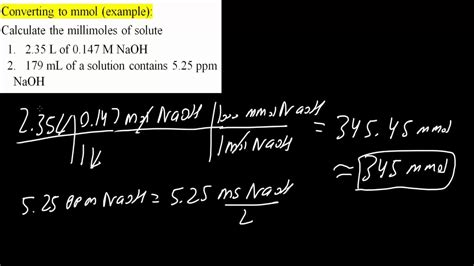 Converting to mmol (example):
Calculate the millimoles of solute
1. 2.35 L of 0.147 M NaOH
2. 179 mL of a solution contains 5.25 ppm
NaOH
2.35L | 0.147 mol NaOH | 1000 mmol NaOH = 345.45 mmol
1L | 1 mol NaOH
≈ 345 mmol
5.25 ppm NaOH = 5.25 mg NaOH
L